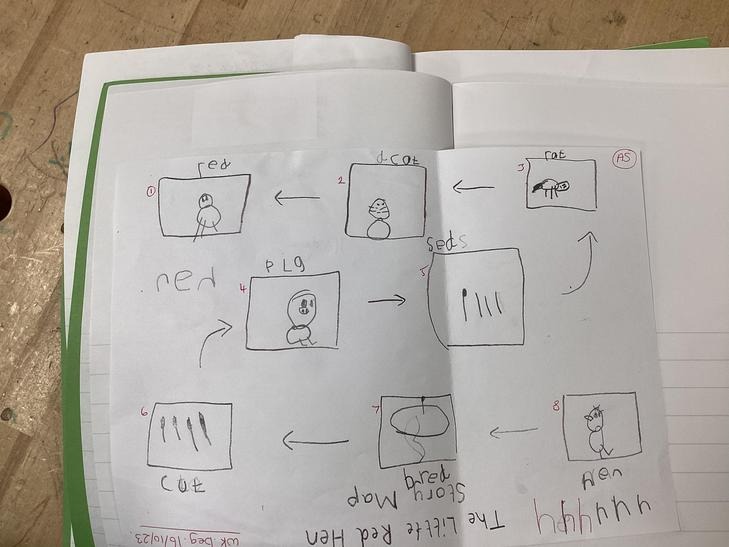 AS
red
1
dcat
2
rat
3
hen
pig
4
seds
5
6
cat
7
8
Hen
The Little Red Hen
Story Map
WK: beg: 16/10/23